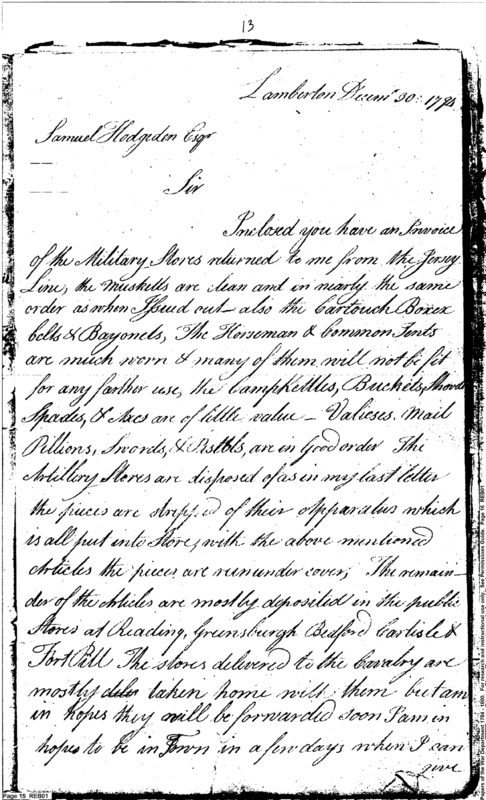 13
Lamberton Decemr 30: 1794
Samuel Hodgdon Esqr
Sir
Inclosed you have an Invoice
of the Military Stores returned to me from the Jersey
Line, the muskells are clean and in nearly the same
order as when Issued out – also the Cartouch Boxex
belts & Bayonets, The Horseman & Common Tents
are much worn & many of them will not be fit
for any farther use, the Campkettles, Buckets, Shovels
Spades, & Axes are of little value – Valieses, Mail
Pillions, Swords, & Pistols, are in Good order The
Artillery Stores are disposed of as in my last letter
the pieces are stripped of their apparatus which
is all put into Store, with the above mentioned
Articles the pieces are run under cover; The remain–
der of the Articles are mostly deposited in the public
Stores at Reading, Greensburgh Bedford Carlisle &
Fort Pitt The stores delivered to the Cavalry are
mostly taken home with them but am
in hopes they will be forwarded soon I am in
hopes to be in Town in a few days when I can
give
Page 15 REB01
Papers of the War Department 1784 - 1800. For research and instructional use only. See Permissions Guide. Page 15 REB01